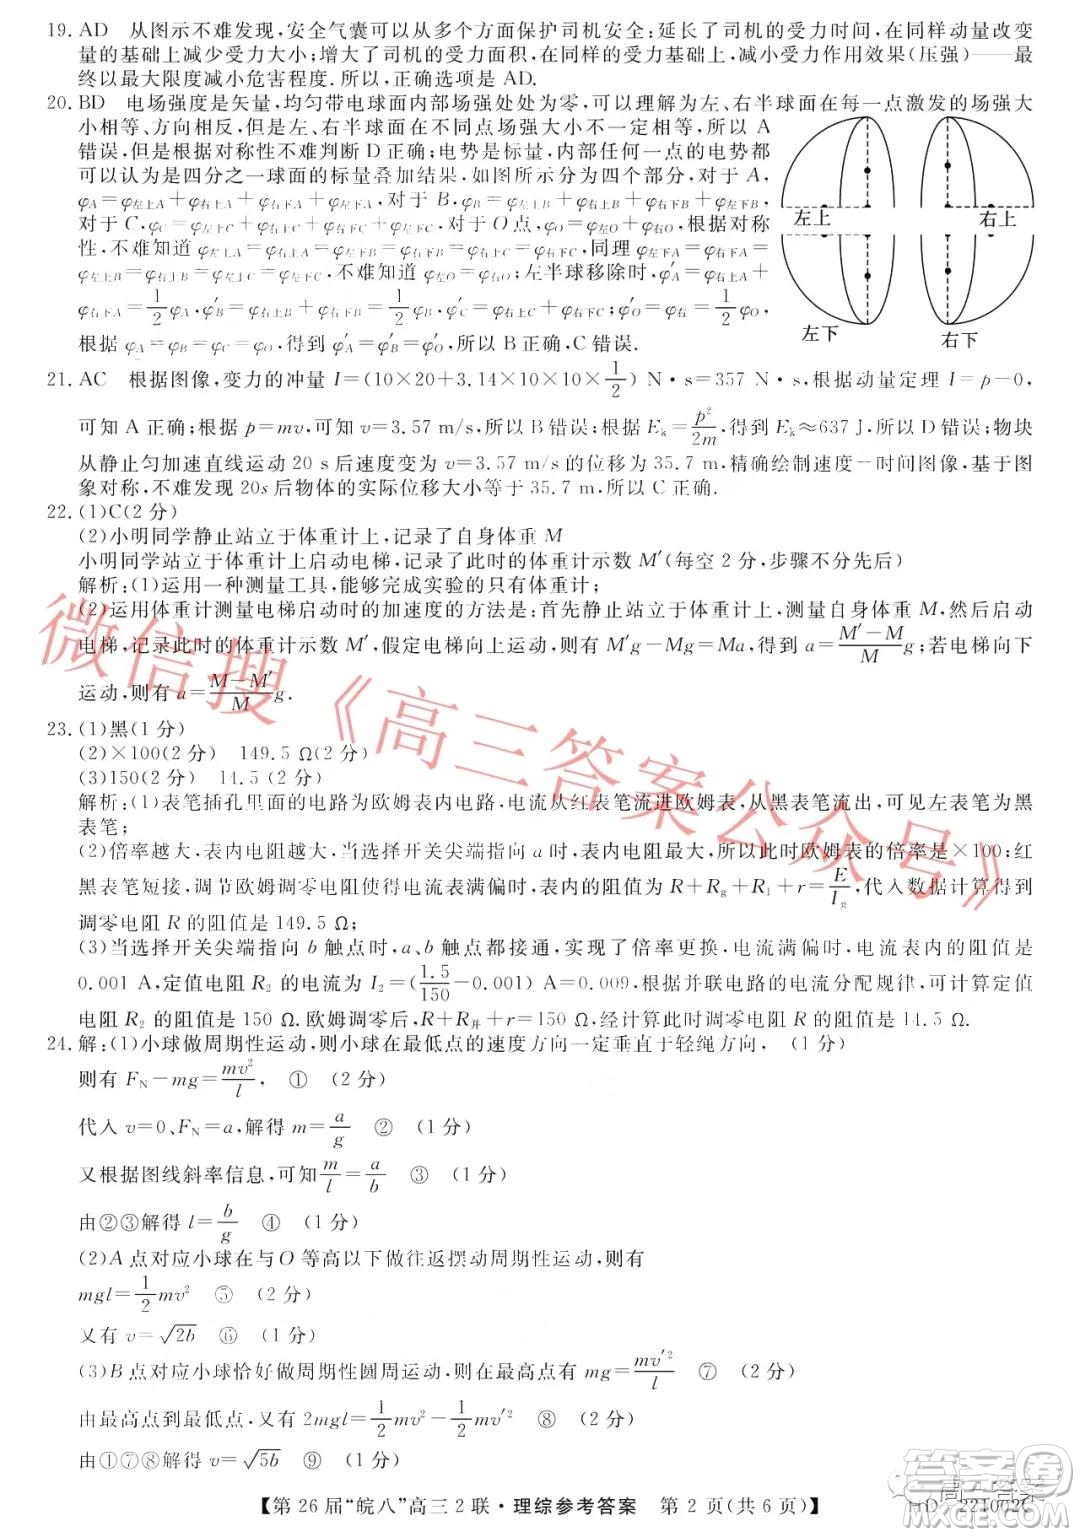 19. AD　从图示不难发现,安全气囊可以从多个方面保护司机安全:延长了司机的受力时间,在同样动量改变
量的基础上减少受力大小;增大了司机的受力面积,在同样的受力基础上,减小受力作用效果(压强)——最
终以最大限度减小危害程度.所以,正确选项是 AD.
20. BD　电场强度是矢量,均匀带电球面内部场强处处为零,可以理解为左、右半球面在每一点激发的场强大
小相等、方向相反,但是左、右半球面在不同点场强大小不一定相等,所以 A
错误,但是根据对称性不难判断 D 正确;电势是标量,内部任何一点的电势都
可以认为是四分之一球面的标量叠加结果.如图所示分为四个部分,对于 A,
φA=φ左上A+φ右上A+φ左下A+φ右下A.对于 B,φB=φ左上B+φ右上B+φ左下B+φ右下B,
对于 C,φC=φ左上C+φ右上C+φ左下C+φ右下C.对于 O 点,φO=φ左O+φ右O,根据对称
性,不难知道 φ左上A=φ右上A=φ左下A=φ右下A,同理
φ左上B=φ右上B=φ左下B=φ右下B,不难知道 φ左O=φ右O;左半球移除时,φ′A=φ右上A+
φ右下A=1/2φA.φ′B=φ右上B+φ右下B=1/2φB.φ′C=φ右上C+φ右下C;φ′O=φ右=1/2φO,
根据 φA=φB=φC=φO,得到 φ′A=φ′B=φ′O,所以 B 正确,C错误.
左上
右上
左下
右下
21. AC　根据图像,变力的冲量 I=(10×20+3.14×10×10×1/2) N·s=357 N·s,根据动量定理 I=p−0,
可知 A 正确;根据 p=mv,可知 v=3.57 m/s,所以 B 错误;根据 Ek=p²/2m,得到 Ek≈637 J,所以 D 错误;物块
从静止匀加速直线运动 20 s 后速度变为 v=3.57 m/s 的位移为 35.7 m,精确绘制速度—时间图像,基于图
象对称,不难发现 20s 后物体的实际位移大小等于 35.7 m,所以 C 正确.
22. (1)C(2 分)
(2)小明同学静止站立于体重计上,记录了自身体重 M
小明同学站立于体重计上启动电梯,记录了此时的体重计示数 M′(每空 2 分,步骤不分先后)
解析:(1)运用一种测量工具,能够完成实验的只有体重计;
(2)运用体重计测量电梯启动时的加速度的方法是:首先静止站立于体重计上,测量自身体重 M,然后启动
电梯,记录此时的体重计示数 M′,假定电梯向上运动,所以 M′g−Mg=Ma,得到 a=(M′−M)/M g;若电梯向下
运动,则有 a=(M−M′)/M g.
23. (1)黑(1 分)
(2)×100(2 分)　149.5 Ω(2 分)
(3)150(2 分)　14.5 (2 分)
解析:(1)表笔插孔里面的电路为欧姆表内电路,电流从红表笔流进欧姆表,从黑表笔流出,可见左表笔为黑
表笔;
(2)倍率越大,表内电阻越大,当选择开关尖端指向 a 时,表内电阻最大,所以此时欧姆表的倍率是×100;红
黑表笔短接,调节欧姆调零电阻使得电流表满偏时,表内的阻值为 R+Rg+R1+r=E/Ig,代入数据计算得到
调零电阻 R 的阻值是 149.5 Ω;
(3)当选择开关尖端指向 b 触点时,a、b 触点都接通,实现了倍率更换,电流满偏时,电流表内的阻值是
0.001 A,定值电阻 R2 的电流为 I2=(1.5/150−0.001) A=0.009,根据并联电路的电流分配规律,可计算定值
电阻 R2 的阻值是 150 Ω.欧姆调零后,R+R并+r=150 Ω,经计算此时调零电阻的阻值是 14.5 Ω.
24. 解:(1)小球做周期性运动,则小球在最低点的速度方向一定垂直于轻绳方向,　(1 分)
则有 FN−mg=mv²/l,　①　(2 分)
代入 v=0、FN=a,解得 m=a/g　②　(1 分)
又根据图线斜率信息,可知 m/l=a/b　③　(1 分)
由②③解得 l=b/g　④　(1 分)
(2)A 点对应小球在与 O 等高以下做往返摆动周期性运动,则有
mgl=1/2mv²　⑤　(2 分)
又有 v=√2b　⑥　(1 分)
(3)B 点对应小球恰好做周期性圆周运动,则在最高点有 mg=mv′²/l　⑦　(2 分)
由最高点到最低点,又有 2mgl=1/2mv²−1/2mv′²　⑧　(2 分)
由①⑦⑧解得 v=√5b　⑨　(1 分)
【第 26 届“皖八”高三 2 联·理综参考答案　第 2 页(共 6 页)】
微信搜《高三答案公众号》
答案圈